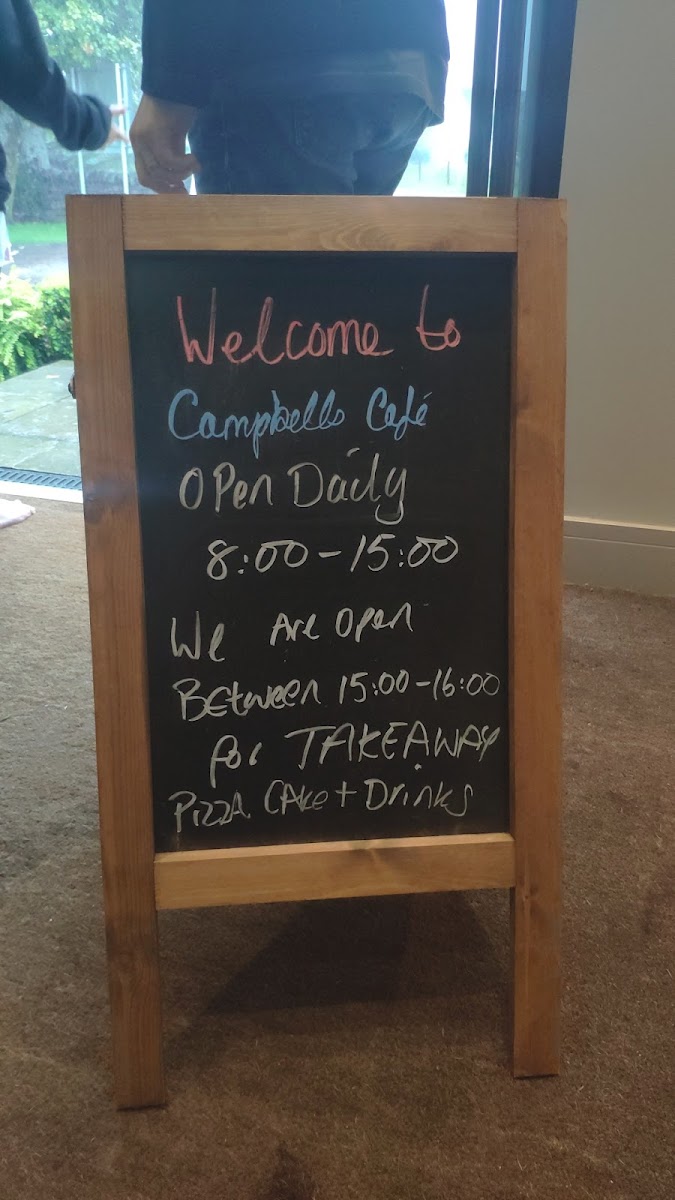 Welcome to
Campbells Café
OPen Daily
8:00-15:00
We Are Open
Between 15:00-16:00
for TAKEAWAY
Pizza, Cake + Drinks